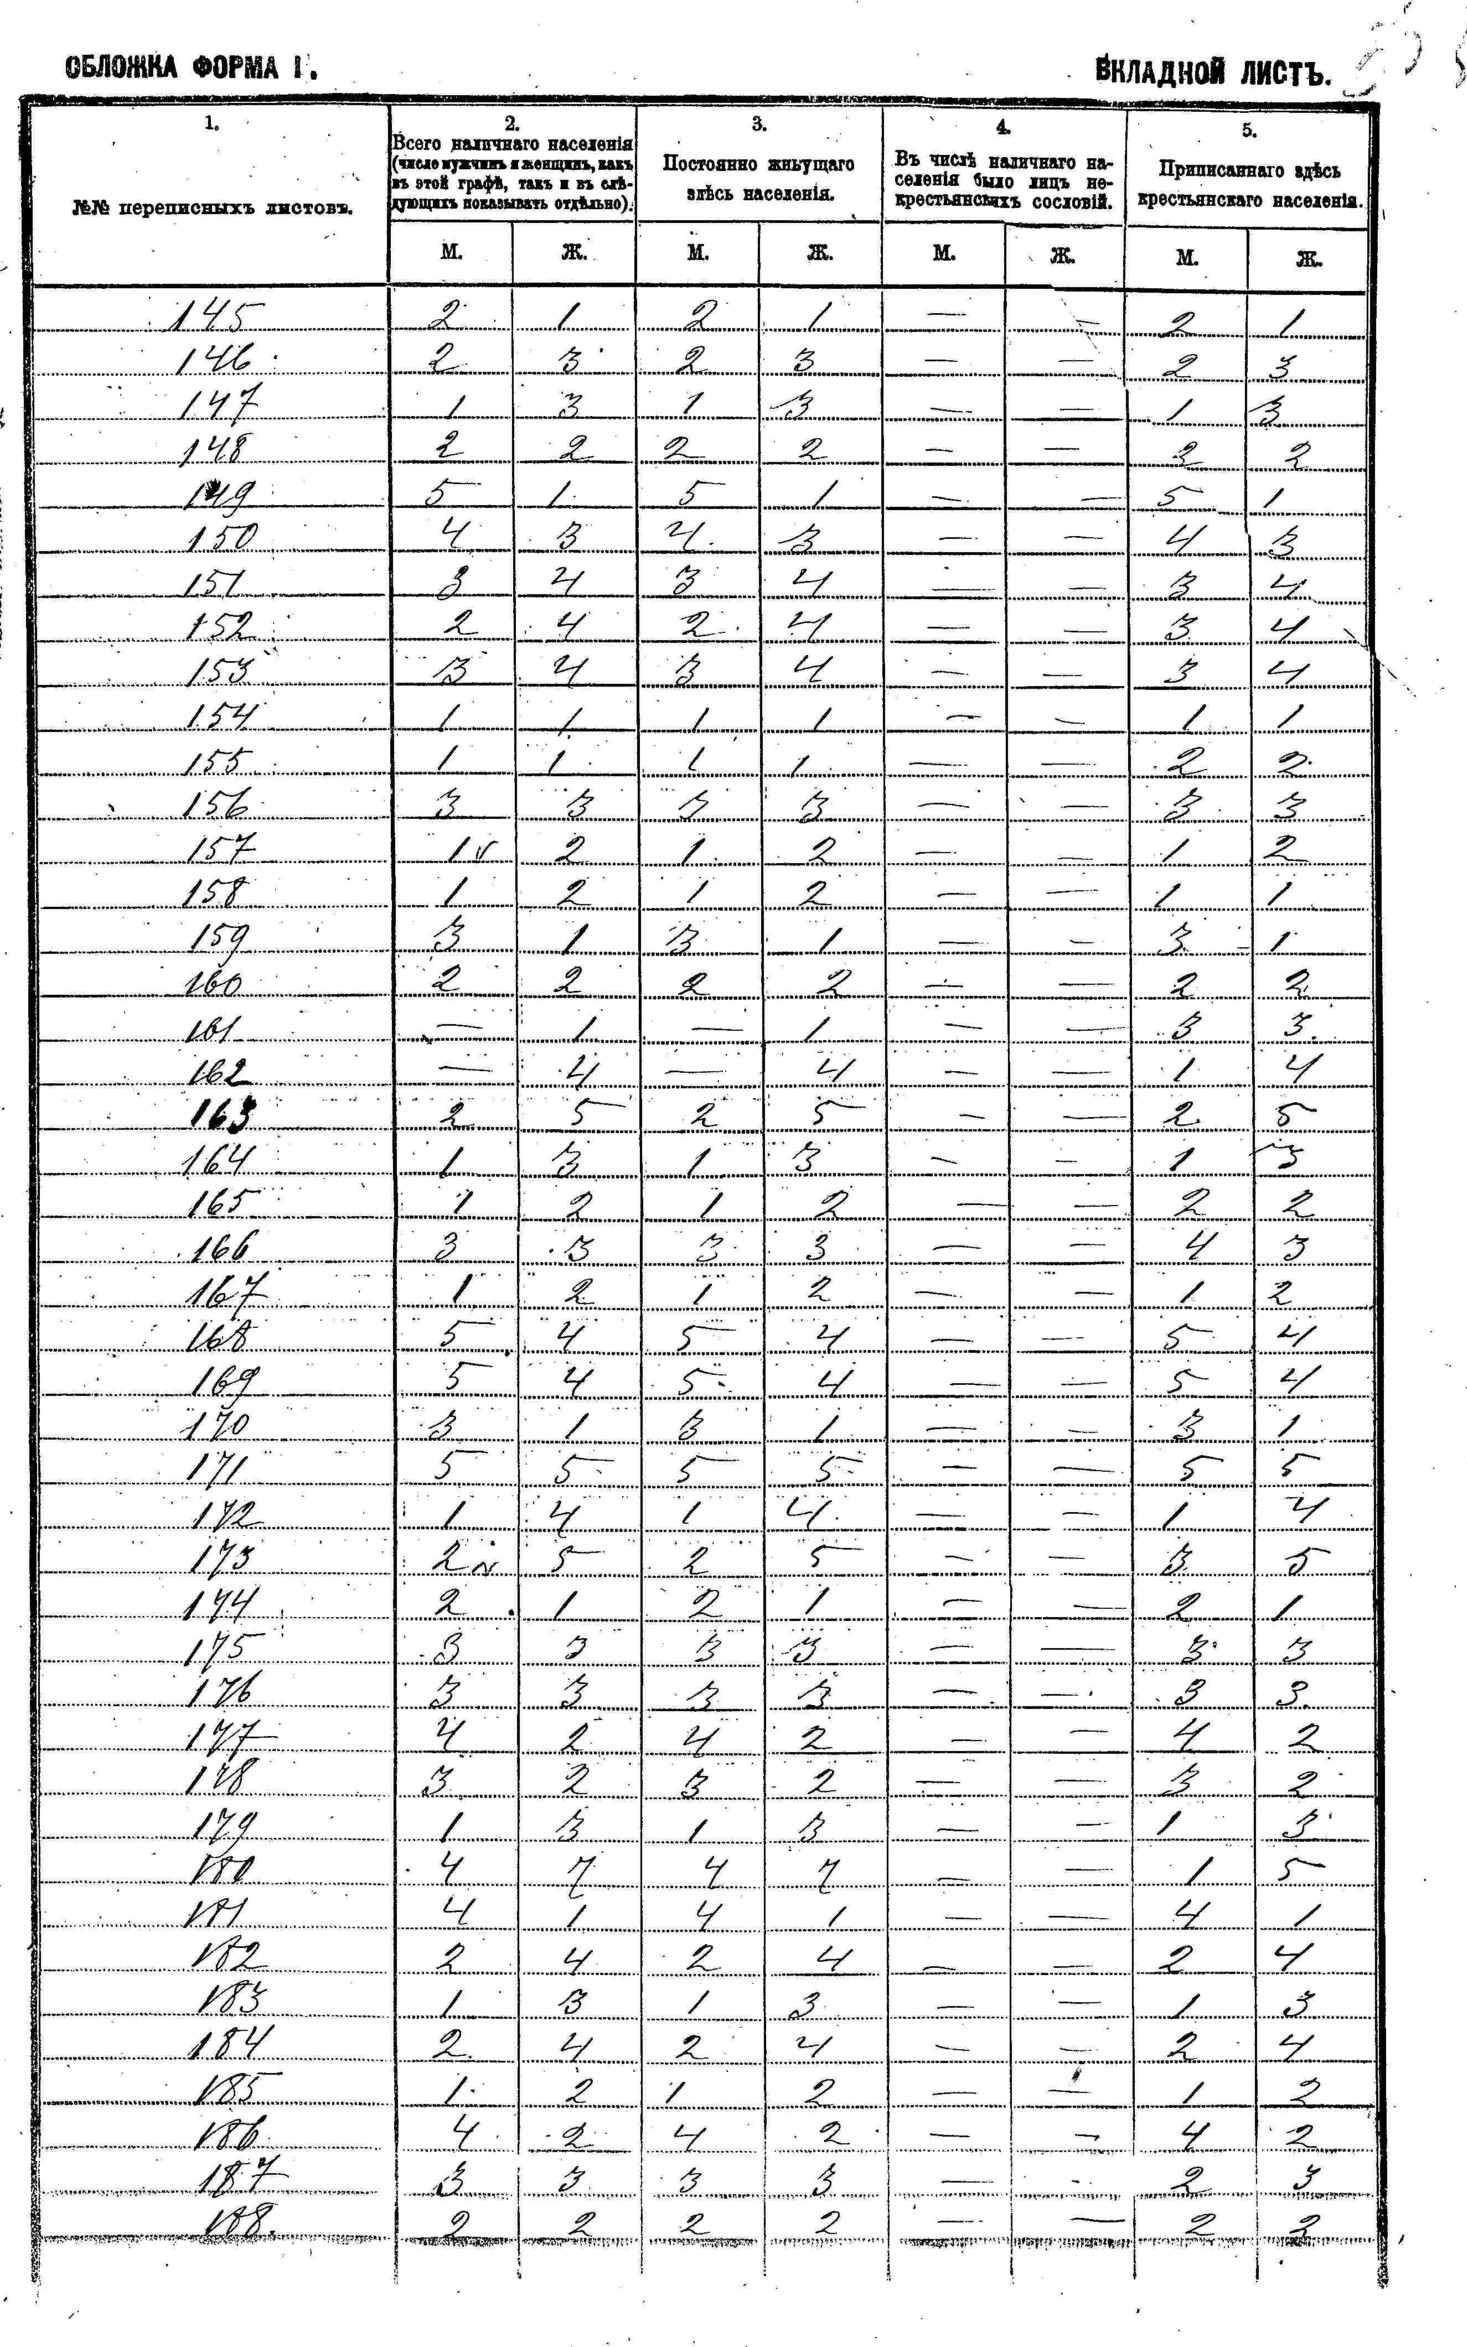 ОБЛОЖКА ФОРМА I. ВКЛАДНОЙ ЛИСТЪ.
1. 2. 3. 4. 5.
№№ переписныхъ листовъ.
Всего наличнаго населенія
(число мужчинъ и женщинъ, какъ
въ этой графѣ, такъ и въ слѣ-
дующихъ показывать отдѣльно).
Постоянно живущаго
здѣсь населенія.
Въ числѣ наличнаго на-
селенія было лицъ не-
крестьянскихъ сословій.
Приписаннаго здѣсь
крестьянскаго населенія.
М. Ж. М. Ж. М. Ж. М. Ж.
145 2 1 2 1 — — 2 1
146 2 3 2 3 — — 2 3
147 1 3 1 3 — — 1 3
148 2 2 2 2 — — 2 2
149 5 1 5 1 — — 5 1
150 4 3 4 3 — — 4 3
151 3 4 3 4 — — 3 4
152 2 4 2 4 — — 3 4
153 3 4 3 4 — — 3 4
154 1 1 1 1 — — 1 1
155 1 1 1 1 — — 2 2
156 3 3 3 3 — — 3 3
157 1 v 2 1 2 — — 1 2
158 1 2 1 2 — — 1 1
159 3 1 3 1 — — 3 1
160 2 2 2 2 — — 2 2
161 — 1 — 1 — — 3 3
162 — 4 — 4 — — 1 4
163 2 5 2 5 — — 2 5
164 1 3 1 3 — — 1 3
165 1 2 1 2 — — 2 2
166 3 3 3 3 — — 4 3
167 1 2 1 2 — — 1 2
168 5 4 5 4 — — 5 4
169 5 4 5 4 — — 5 4
170 3 1 3 1 — — 3 1
171 5 5 5 5 — — 5 5
172 1 4 1 4 — — 1 4
173 2 v 5 2 5 — — 3 5
174 2 1 2 1 — — 2 1
175 3 3 3 3 — — 3 3
176 3 3 3 3 — — 3 3
177 4 2 4 2 — — 4 2
178 3 2 3 2 — — 3 2
179 1 3 1 3 — — 1 3
180 4 7 4 7 — — 1 5
181 4 1 4 1 — — 4 1
182 2 4 2 4 — — 2 4
183 1 3 1 3 — — 1 3
184 2 4 2 4 — — 2 4
185 1 2 1 2 — — 1 2
186 4 2 4 2 — — 4 2
187 3 3 3 3 — — 2 3
188. 2 2 2 2 — — 2 2